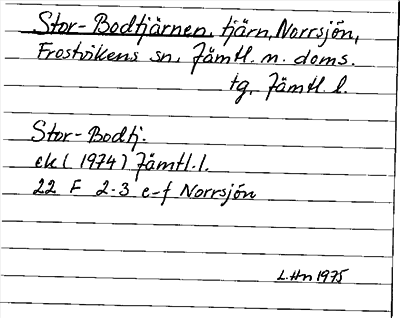 Stor-Bodtjärnen, tjärn, Norrsjön,
Frostvikens sn, Jämtl. n. doms.
tg, Jämtl. l.
Stor-Bodtj.
ek (1974) Jämtl. l.
22 F 2-3 e-f Norrsjön
L. Hn 1975